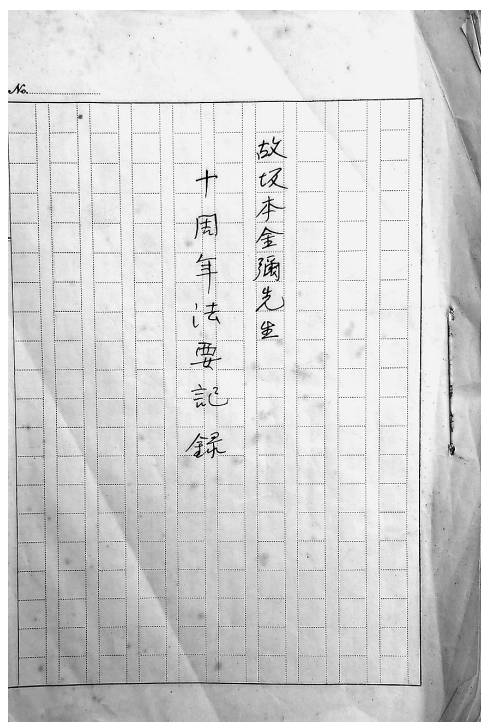 No.
故坂本金彌先生
十周年法要記録